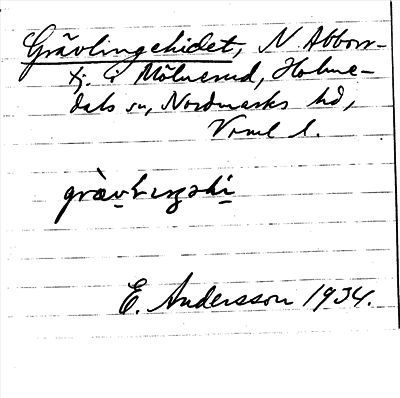 Grävlingehidet, N. Abborr-
tj. i Mölnerud, Holme-
dals sn, Nordmarks hd,
Vrml l.
E. Andersson 1934.